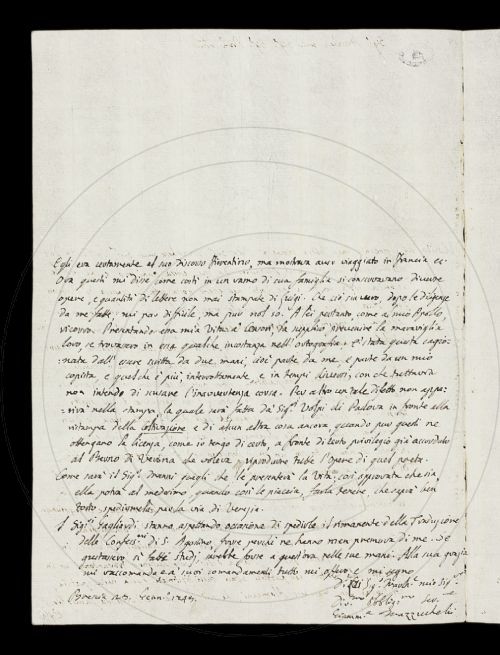 Egli era certamente al suo discorso Fiorentino, ma mostrava aver viaggiato in Francia ec.
Ora questi mi disse come costì in un ramo di sua famiglia si conservavano diverse
opere, e quantità di lettere non mai stampate di Luigi. Che ciò sia vero, dopo le diligenze
da me fatte, mi par difficile, ma può nol so. A lei pertanto come a mio Apollo,
ricorro. Presentando ora mia Vita a' Censori, la supplico prevenire la meraviglia
loro se trovassero in essa qualche incostanza nell'ortografia. È stata questa cagio-
nata dall'essere scritta da due mani, cioè parte da me, e parte da un mio
copista, e quel ch'è più, interrottamente, e in tempi diversi; con che tuttavia
non intendo di scusare l'inavvertenza corsa. Per altro un tale difetto non appa-
rirà nella stampa, la quale sarà fatta da' Sigri Volpi di Padova in fronte alla
ristampa della coltivazione e di alcun altra cosa ancora quando pur questi ne
ottengano la licenza, come io tengo di certo, a fronte di certo privilegio già accordato
al Berno di Verona che voleva riprodurre tutte l'Opere di quel poeta.
Come sarà il Sigr a quegli che le presenterà la Vita, così approvata che sia
ella potrà al medesimo, quando così le piaccia, farla tenere, che saprà ben
tosto spedirmela per la via di Venezia.
I Sigri Gagliardi stanno aspettando occasione di spedirle il rimanente della Traduzione
delle Confessni di S. Agostino, forse perchè ne hanno men premura di me. Se
gustassero sì fatti studj sarebbe forse a quest'ora nelle sue mani. Alla sua grazia
mi raccomando e a' suoi comandamenti tutto mi offero e mi segno
Di VS Sigr mio Sigr
Brescia Gennro 1745.
Divmo Obbligmo Serre
Giammra Mazzuchelli